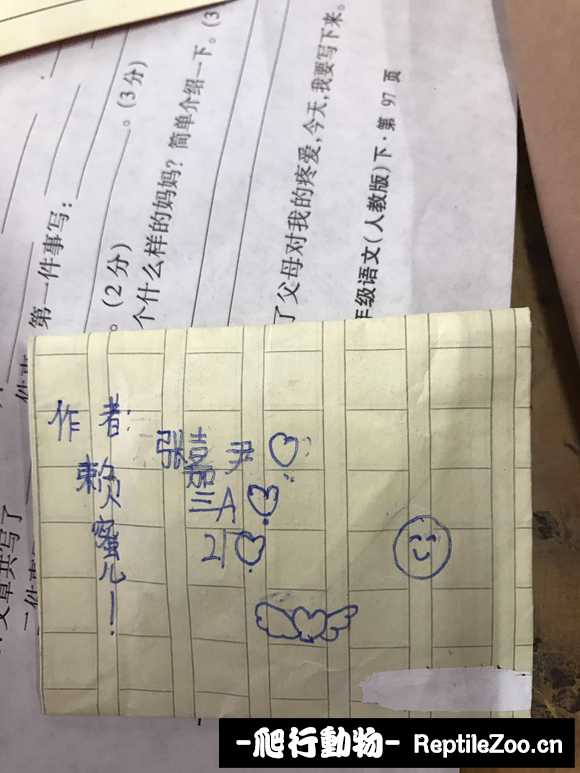 第一件事写：
。(2分)
。(3分)
个什么样的妈妈？简单介绍一下。(3
了父母对我的疼爱，今天，我要写下来。
年级语文(人教版)下·第 97 页
作者：
张嘉尹
赖蜜儿一！
三A
21
-爬行動物- ReptileZoo.cn